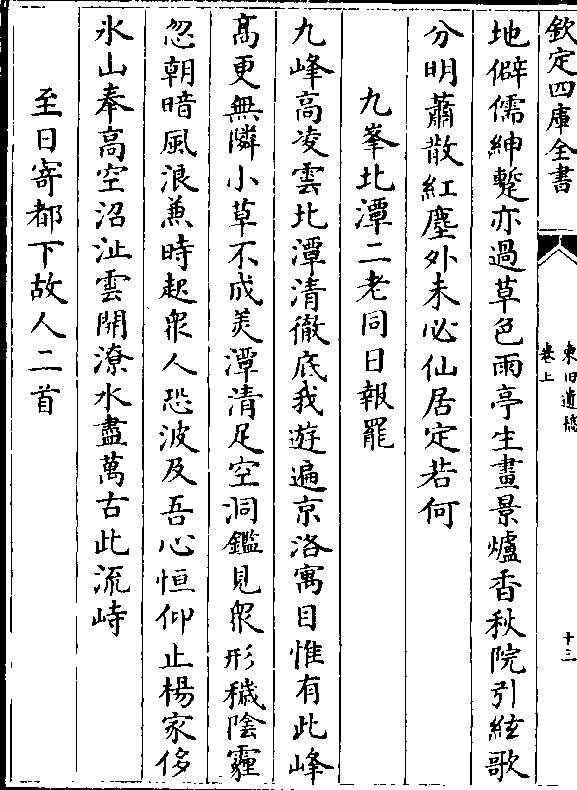 欽定四庫全書
東田遺稿
卷上
十三
地僻儒紳蹔亦過草色雨亭生畫景爐香秋院引絃歌
分明蕭散紅塵外未必仙居定若何
九峯北潭二老同日報罷
九峰高凌雲北潭清徹底我遊遍京洛寓目惟有此峰
髙更無隣小草不成美潭清足空洞鑑見衆形穢陰霾
忽朝暗風浪兼時起衆人恐波及吾心恒仰止楊家侈
氷山奉高空沼沚雲開潦水盡萬古此流峙
至日寄都下故人二首